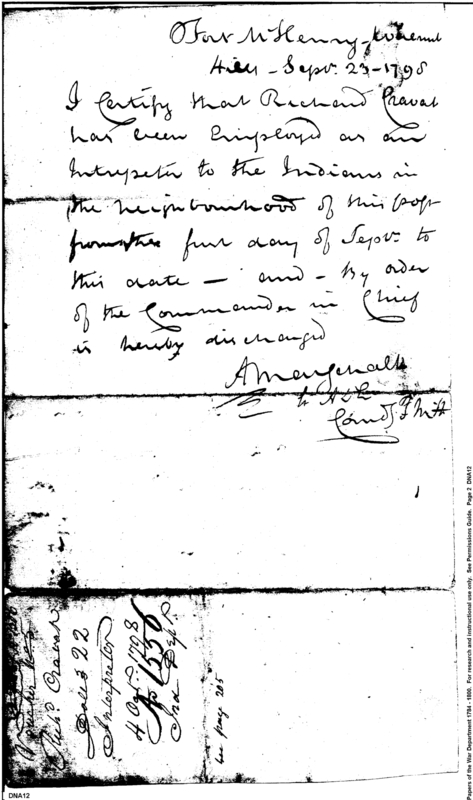 Fort McHenry - Walnut
Hills - Septr. 23 - 1798
I Certify that Richard Cravat
has been Employed as an
Intrepeter to the Indians in
the neighbourhood of this post
from the first day of Septr. to
this date — and — By order
of the Commander in Chief
is hereby discharged
A Marschalk
Lt
Comdg. F McH
Voucher
Richd. Cravat
Dolls 22
Interpretor
4 1798
No 1556
Ind Dept.
see page 205
DNA12
Papers of the War Department 1784 - 1800. For research and instructional use only. See Permissions Guide. Page 2 DNA12